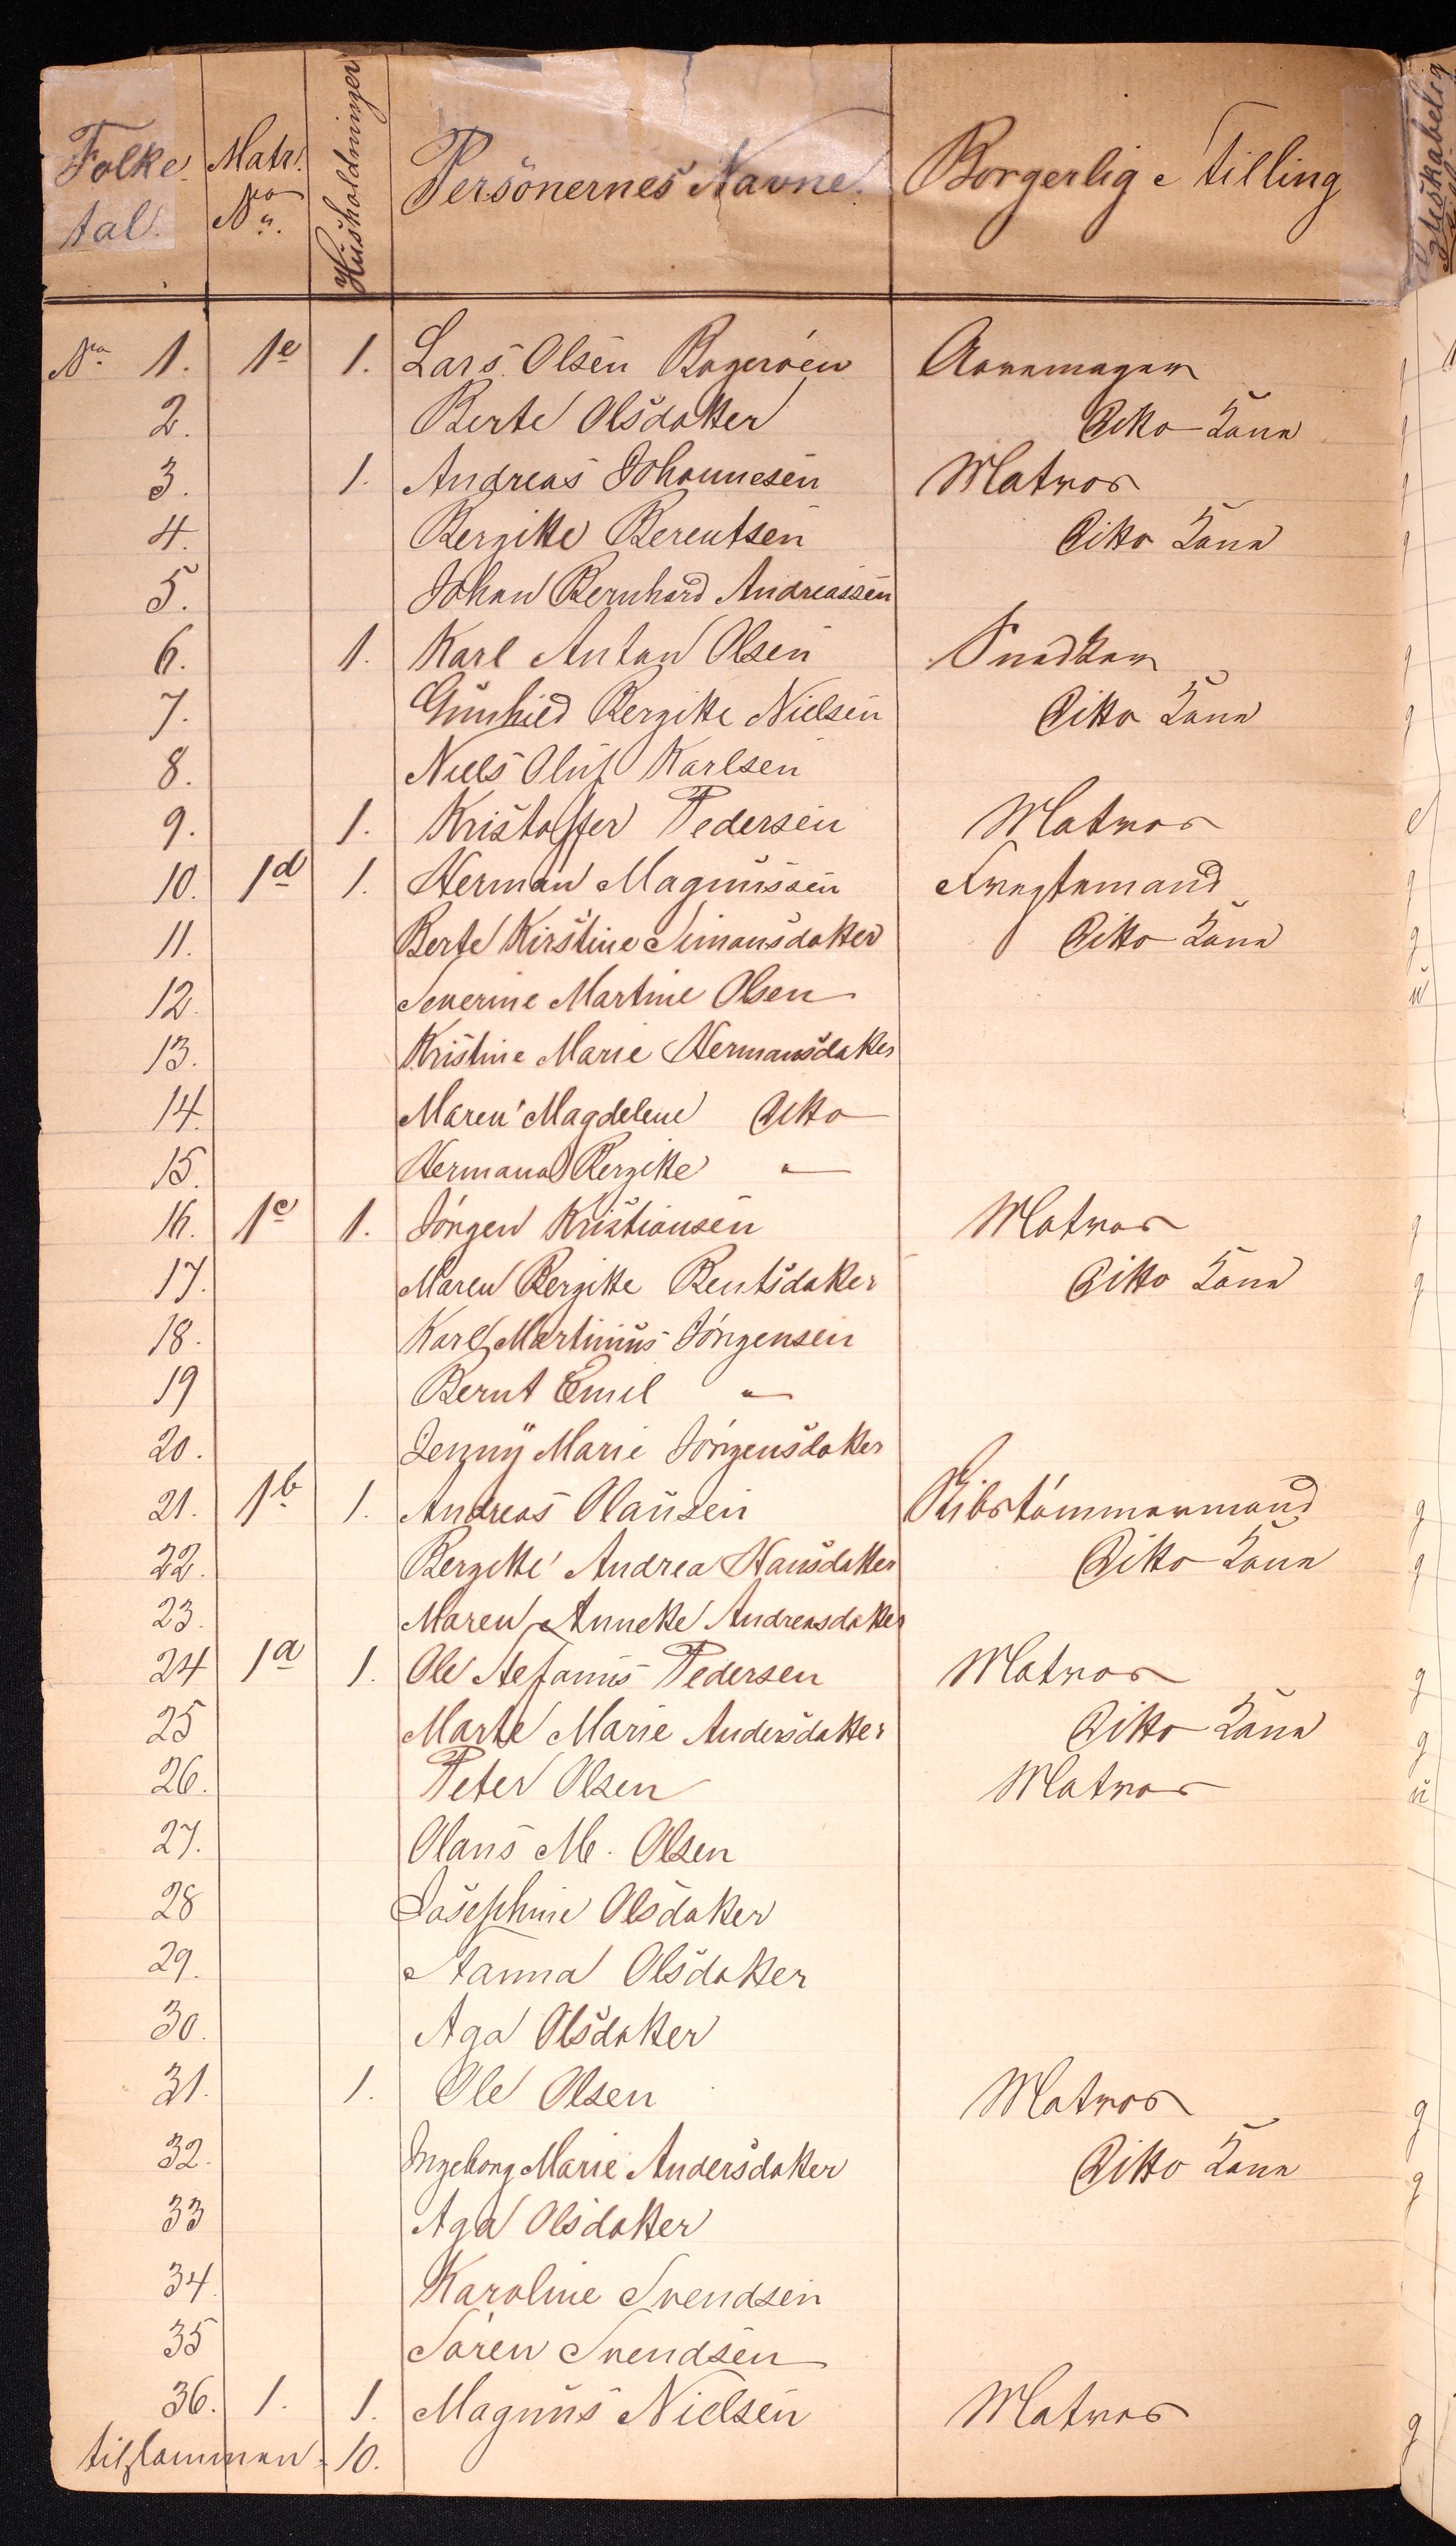 Folke Matr. Husholdninger Personernes Navne. Borgerlig Stilling Egteskabelig
tal. No
No 1. 1e 1. Lars Olsen Bogerøen
2. Berte Olsdatter Ditto Kone
3. 1. Andreas Johannesen Matros
4. Bergitte Berentsen Ditto Kone
5. Johan Bernhard Andreassen
6. 1. Karl Anton Olsen Snedker
7. Gunhild Bergitte Nielsen Ditto Kone
8. Niels Oluf Karlsen
9. 1. Kristoffer Pedersen Matros
10. 1d 1. Herman Magnussen Fragtemand
11. Berte Kirstine Simonsdatter Ditto Kone
12. Severine Martine Olsen
13. Kristine Marie Hermansdatter
14. Maren Magdelene Ditto
15. Hermana Bergitte "
16. 1c 1. Jörgen Kristiansen Matros
17. Maren Bergitte Bentsdatter Ditto Kone
18. Karl Martinius Jörgensen
19 Bernt Emil "
20. Jenny Marie Jörgensdatter
21. 1b 1. Andreas Olausen Skibstömmermand
22. Bergitte Andrea Hansdatter Ditto Kone
23. Maren Annette Andreasdatter
24 1a 1. Ole Stefanus Pedersen Matros
25 Marte Marie Andersdatter Ditto Kone
26. Peter Olsen Matros
27. Olaus M. Olsen
28 Josephine Olsdatter
29. Hanna Olsdatter
30. Aga Olsdatter
31. 1. Ole Olsen Matros
32. Ingeborg Marie Andersdatter Ditto Kone
33 Aga Olsdatter
34. Karoline Svendsen
35 Sören Svendsen
36. 1. 1. Magnus Nielsen Matros
tilsammen 10.